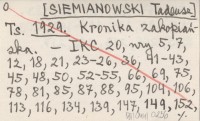 [SIEMIANOWSKI Tadeusz]
Ts. 1929. Kronika zakopiań-
ska. – IKC 20, nry 5, 7,
12, 18, 21, 23-26, 36, 91-43,
45, 48, 50, 52-55, 66, 69, 75,
78, 81, 85, 87, 88, 95, 104, 106,
113, 116, 134, 139, 147, 149, 152,